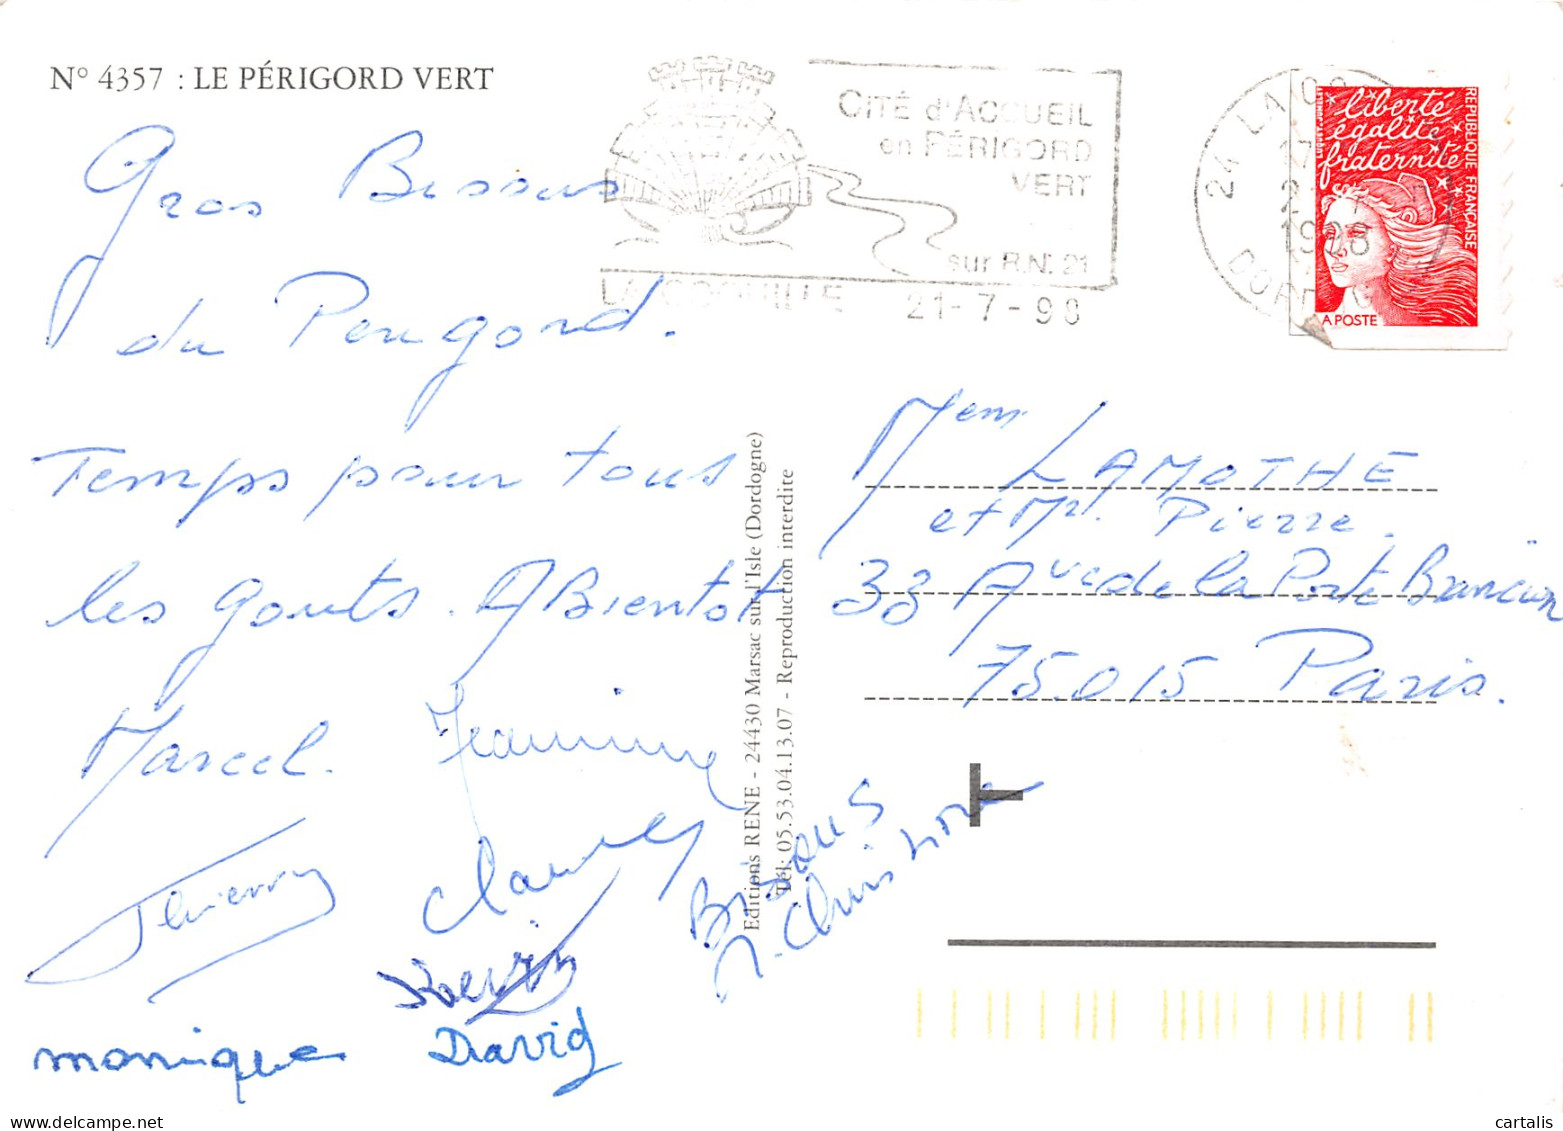 N° 4357 : LE PÉRIGORD VERT
CITÉ d'ACCUEIL
en PÉRIGORD
VERT
sur R.N. 21
LA COQUILLE 21-7-98
24 LA CO
17
21
1998
DORDOG
liberté
égalité
fraternité
REPUBLIQUE FRANÇAISE
LA POSTE
Gros Bisous
du Perigord.
Temps pour tous
les gouts. A Bientot
Marcel. Jeannine
Thierry
Kevin
monique David
Bisous
M. Christine
Editions RENE - 24430 Marsac sur l'Isle (Dordogne)
Tél. 05.53.04.13.07 - Reproduction interdite
Mem LAMOTHE
et Mr. Pierre.
33 Ave de la Porte Brancion
75.015 Paris.
cartalis